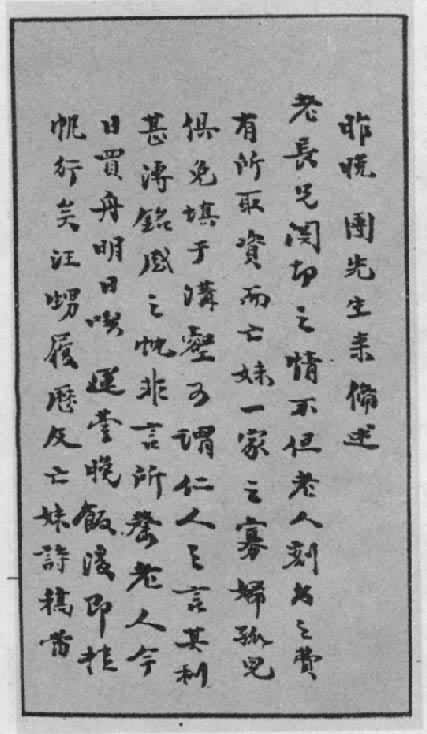 昨晚團先生来備述
老長兄関切之情不但老人刻書之費
有所取資而亡妹一家之寡婦孤兒
俱免填于溝壑可謂仁人之言其利
甚溥銘感之忱非言所罄老人今
日買舟明日喫運臺晚飯後即挂
帆行矣汪甥履歷及亡妹詩稿當